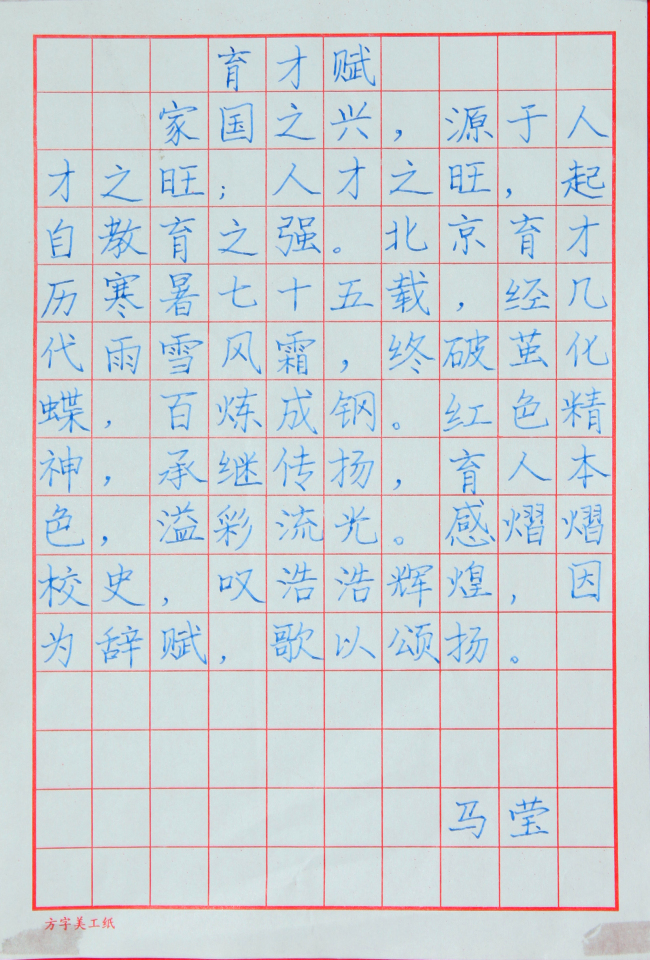 育才赋
家国之兴，源于人
才之旺；人才之旺，起
自教育之强。北京育才
历寒暑七十五载，经几
代雨雪风霜，终破茧化
蝶，百炼成钢。红色精
神，承继传扬，育人本
色，溢彩流光。感熠熠
校史，叹浩浩辉煌，因
为辞赋，歌以颂扬。
马莹
方字美工纸